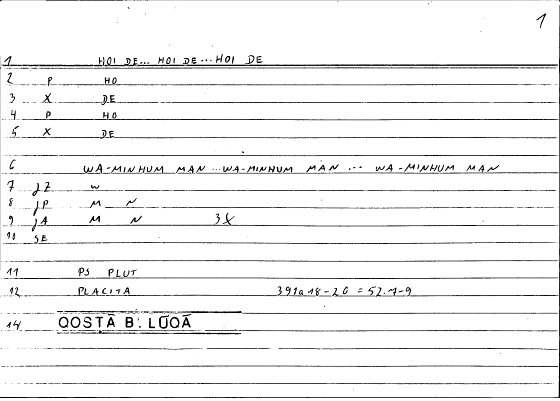 1
1 HOI DE... HOI DE... HOI DE
2 P HO
3 X DE
4 P HO
5 X DE
6 WA-MINHUM MAN ...WA-MINHUM MAN ... WA-MINHUM MAN
7 JZ W
8 JP M N
9 JA M N 3X
10 SE
11 PS PLUT
12 PLACITA 391a18-20 = 52.1-9
14 QOSTĀ B. LŪQĀ